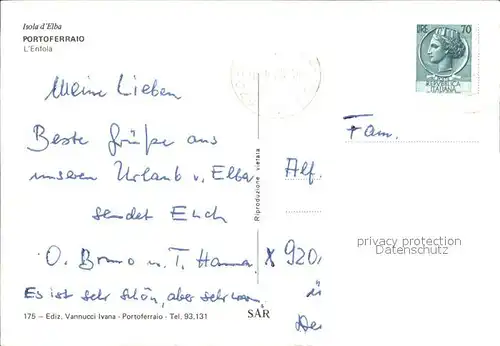 Isola d'Elba
PORTOFERRAIO
L'Enfola
LIRE 70
REPVBBLICA
ITALIANA
Meine Lieben
Beste Grüße aus
unseren Urlaub v. Elba
sendet Euch
O. Bruno u. T. Hanna.
Es ist sehr schön, aber sehr warm.
Riproduzione vietata
Fam.
Alf.
X 920
privacy protection
Datenschutz
175 – Ediz. Vannucci Ivana - Portoferraio - Tel. 93,131
SAR